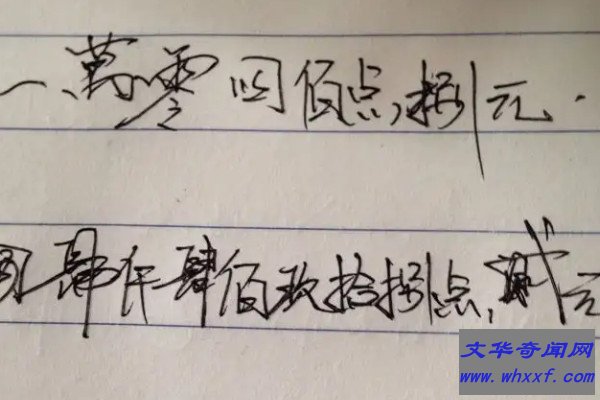 一萬零四佰点捌元.
肆仟肆佰玖拾捌点,贰元
文华奇闻网
www.whxxf.com